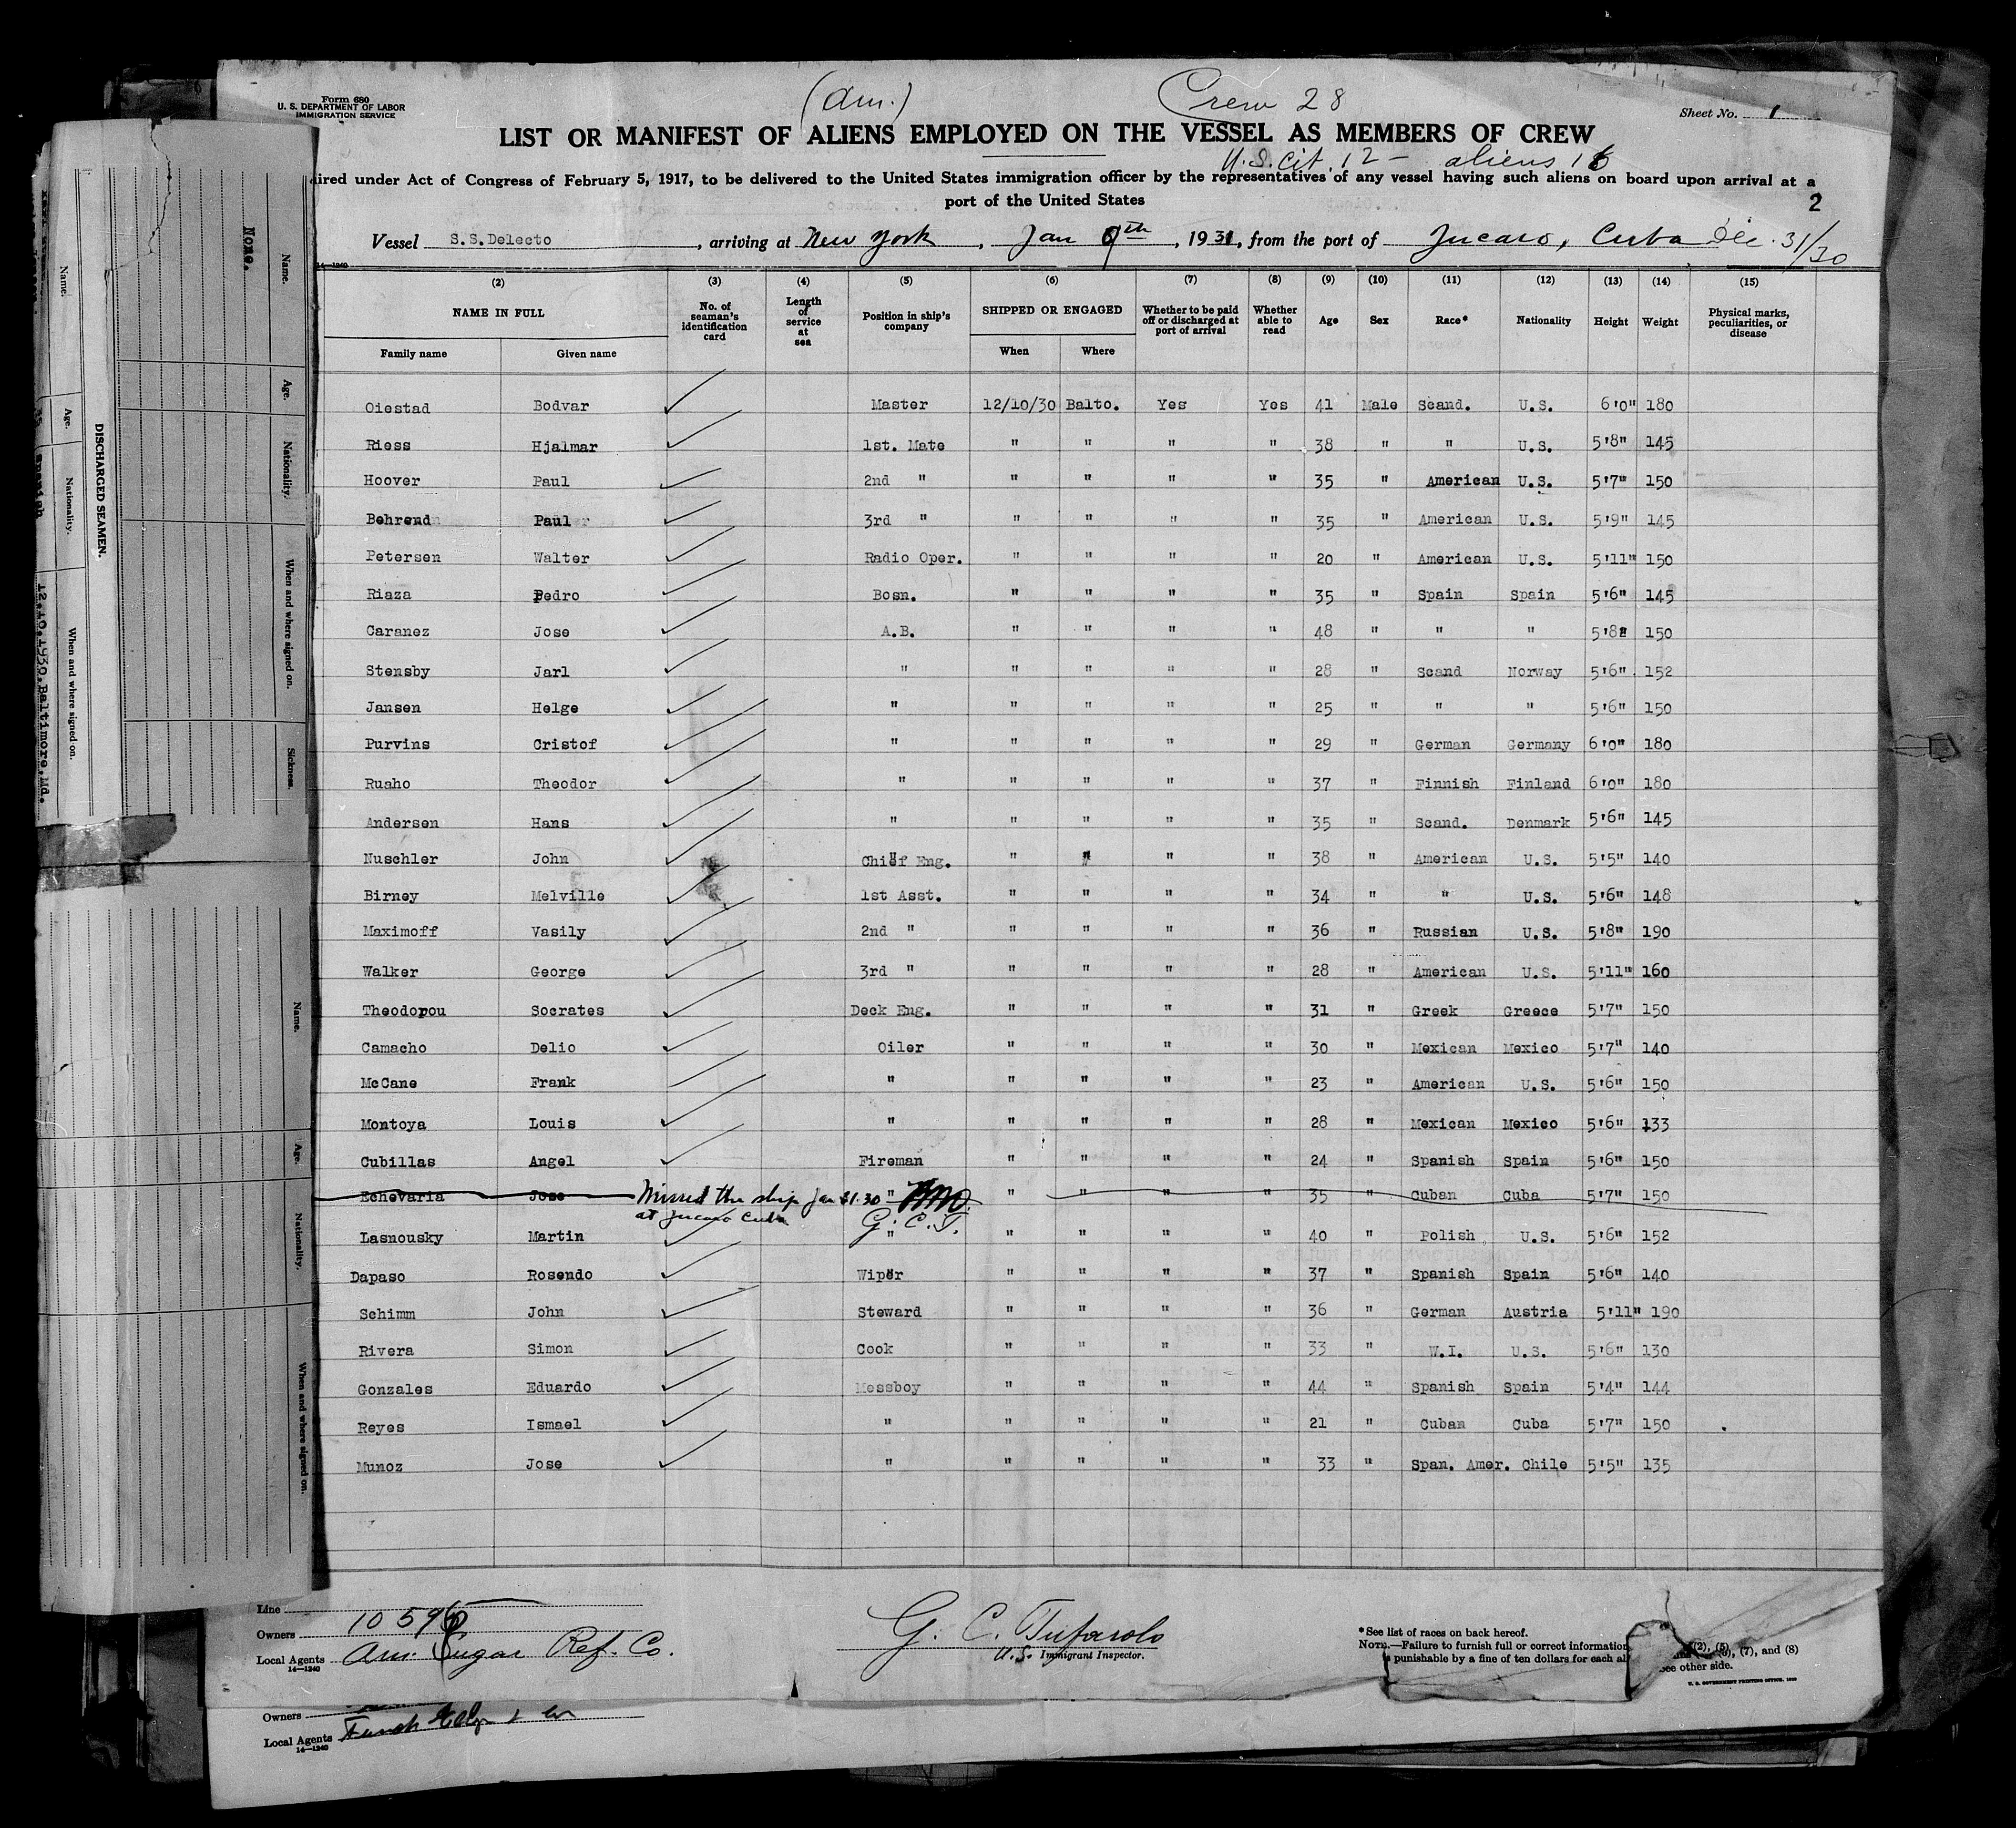 Form 680
U. S. DEPARTMENT OF LABOR
IMMIGRATION SERVICE
(Am.)
Crew 28
Sheet No. 1
LIST OR MANIFEST OF ALIENS EMPLOYED ON THE VESSEL AS MEMBERS OF CREW
U.S. Cit. 12 – aliens 16
ired under Act of Congress of February 5, 1917, to be delivered to the United States immigration officer by the representatives of any vessel having such aliens on board upon arrival at a
port of the United States
2
Vessel S.S.Delecto, arriving at New York, Jan 9th, 1931, from the port of Jucaro, Cuba Dec. 31/30
14—1240
(2) (3) (4) (5) (6) (7) (8) (9) (10) (11) (12) (13) (14) (15)
NAME IN FULL No. of seaman's identification card Length of service at sea Position in ship's company SHIPPED OR ENGAGED Whether to be paid off or discharged at port of arrival Whether able to read Age Sex Race* Nationality Height Weight Physical marks, peculiarities, or disease
Family name Given name When Where
Oiestad Bodvar Master 12/10/30 Balto. Yes Yes 41 Male Scand. U.S. 6'0" 180
Riess Hjalmar 1st. Mate " " " " 38 " " U.S. 5'8" 145
Hoover Paul 2nd " " " " " 35 " American U.S. 5'7" 150
Behrend Paul 3rd " " " " " 35 " American U.S. 5'9" 145
Petersen Walter Radio Oper. " " " " 20 " American U.S. 5'11" 150
Riaza Pedro Bosn. " " " " 35 " Spain Spain 5'6" 145
Caranez Jose A.B. " " " " 48 " " " 5'8" 150
Stensby Jarl " " " " " 28 " Scand Norway 5'6" 152
Jansen Helge " " " " " 25 " " " 5'6" 150
Purvins Cristof " " " " " 29 " German Germany 6'0" 180
Ruaho Theodor " " " " " 37 " Finnish Finland 6'0" 180
Andersen Hans " " " " " 35 " Scand. Denmark 5'6" 145
Nuschler John Chief Eng. " " " " 38 " American U.S. 5'5" 140
Birney Melville 1st Asst. " " " " 34 " " U.S. 5'6" 148
Maximoff Vasily 2nd " " " " " 36 " Russian U.S. 5'8" 190
Walker George 3rd " " " " " 28 " American U.S. 5'11" 160
Theodorou Socrates Deck Eng. " " " " 31 " Greek Greece 5'7" 150
Camacho Delio Oiler " " " " 30 " Mexican Mexico 5'7" 140
McCane Frank " " " " " 23 " American U.S. 5'6" 150
Montoya Louis " " " " " 28 " Mexican Mexico 5'6" 133
Cubillas Angel Fireman " " " " 24 " Spanish Spain 5'6" 150
Echevaria Jose Missed the ship Jan 31.30 " " " " " 35 " Cuban Cuba 5'7" 150
at Jucaro Cuba G. C. T.
Lasnousky Martin " " " " " 40 " Polish U.S. 5'6" 152
Dapaso Rosendo Wiper " " " " 37 " Spanish Spain 5'6" 140
Schimm John Steward " " " " 36 " German Austria 5'11" 190
Rivera Simon Cook " " " " 33 " W.I. U.S. 5'6" 130
Gonzales Eduardo Messboy " " " " 44 " Spanish Spain 5'4" 144
Reyes Ismael " " " " " 21 " Cuban Cuba 5'7" 150
Munoz Jose " " " " " 33 " Span. Amer. Chile 5'5" 135
Line
Owners 10596
Local Agents Am. Sugar Ref. Co.
14—1240
G. C. Tufarolo
U.S. Immigrant Inspector.
*See list of races on back hereof.
NOTE.—Failure to furnish full or correct information (2), (5), (6), (7), and (8)
is punishable by a fine of ten dollars for each al see other side.
U. S. GOVERNMENT PRINTING OFFICE
Owners
Local Agents
14—1240
Name. Age. Nationality. When and where signed on. Sickness.
None.
DISCHARGED SEAMEN.
Name. Age. Nationality. When and where signed on.
Spanish 12.10.1930.Baltimore.Md.
Name. Age. Nationality. When and where signed on.